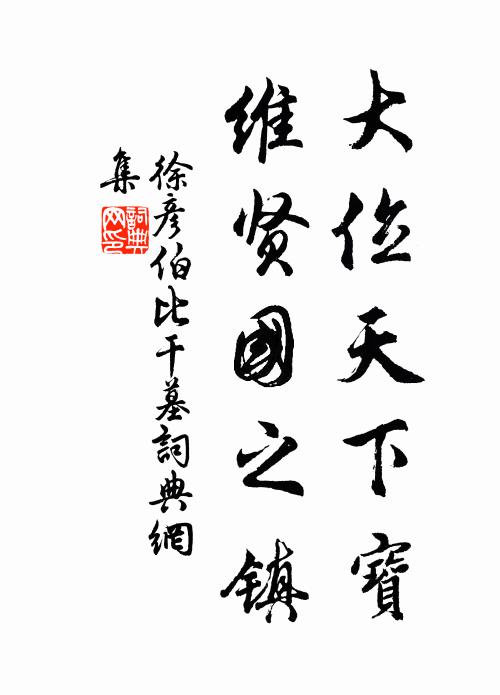 大位天下寶
維贤國之镇
徐彥伯比干墓詞典網
集
詞典
网印